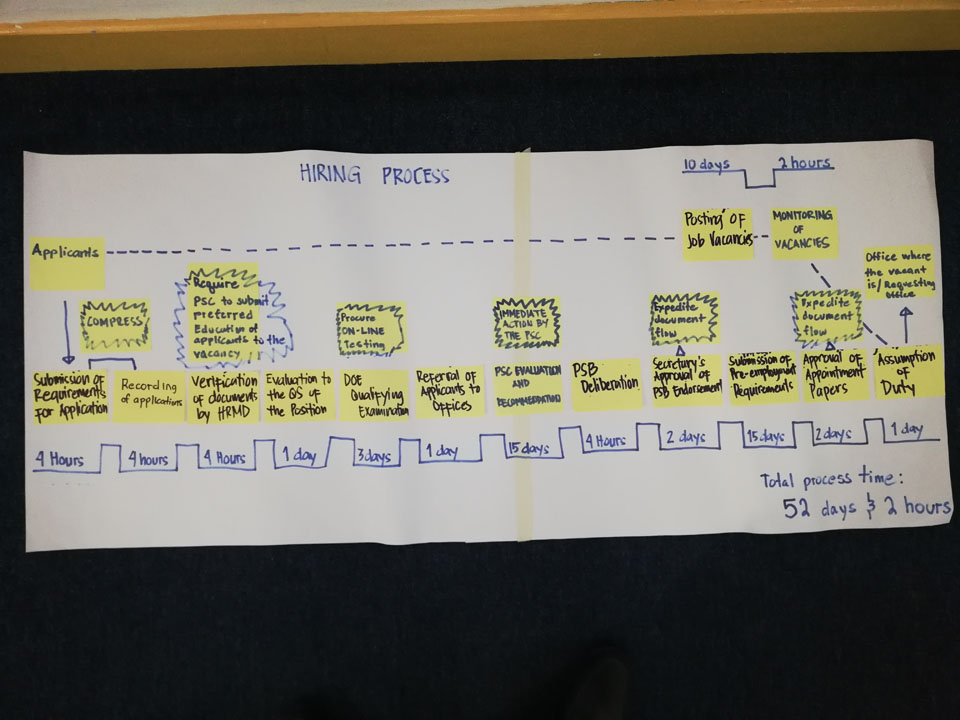 HIRING PROCESS
10 days
2 hours
Posting OF
Job Vacancies
MONITORING
OF
VACANCIES
Applicants
Office where
the vacant
is/ Requesting
Office
COMPRESS
Require
PSC to submit
preferred
Education of
applicants to the
vacancy
Procure
ON-LINE
Testing
IMMEDIATE
ACTION BY
THE PSC
Expedite
document
flow
Expedite
document
flow
Submission of
Requirements
for Application
Recording
of applications
Verification
of documents
by HRMD
Evaluation to
the QS of
the Position
DOE
Qualifying
Examination
Referral of
Applicants to
Offices
PSC EVALUATION
AND
RECOMMENDATION
PSB
Deliberation
Secretary's
Approval of
PSB Endorsement
Submission of
Pre-employment
Requirements
Approval of
Appointment
Papers
Assumption
of
Duty
4 Hours
4 hours
4 Hours
1 day
3 days
1 day
15 days
4 Hours
2 days
15 days
2 days
1 day
Total process time:
52 days & 2 hours